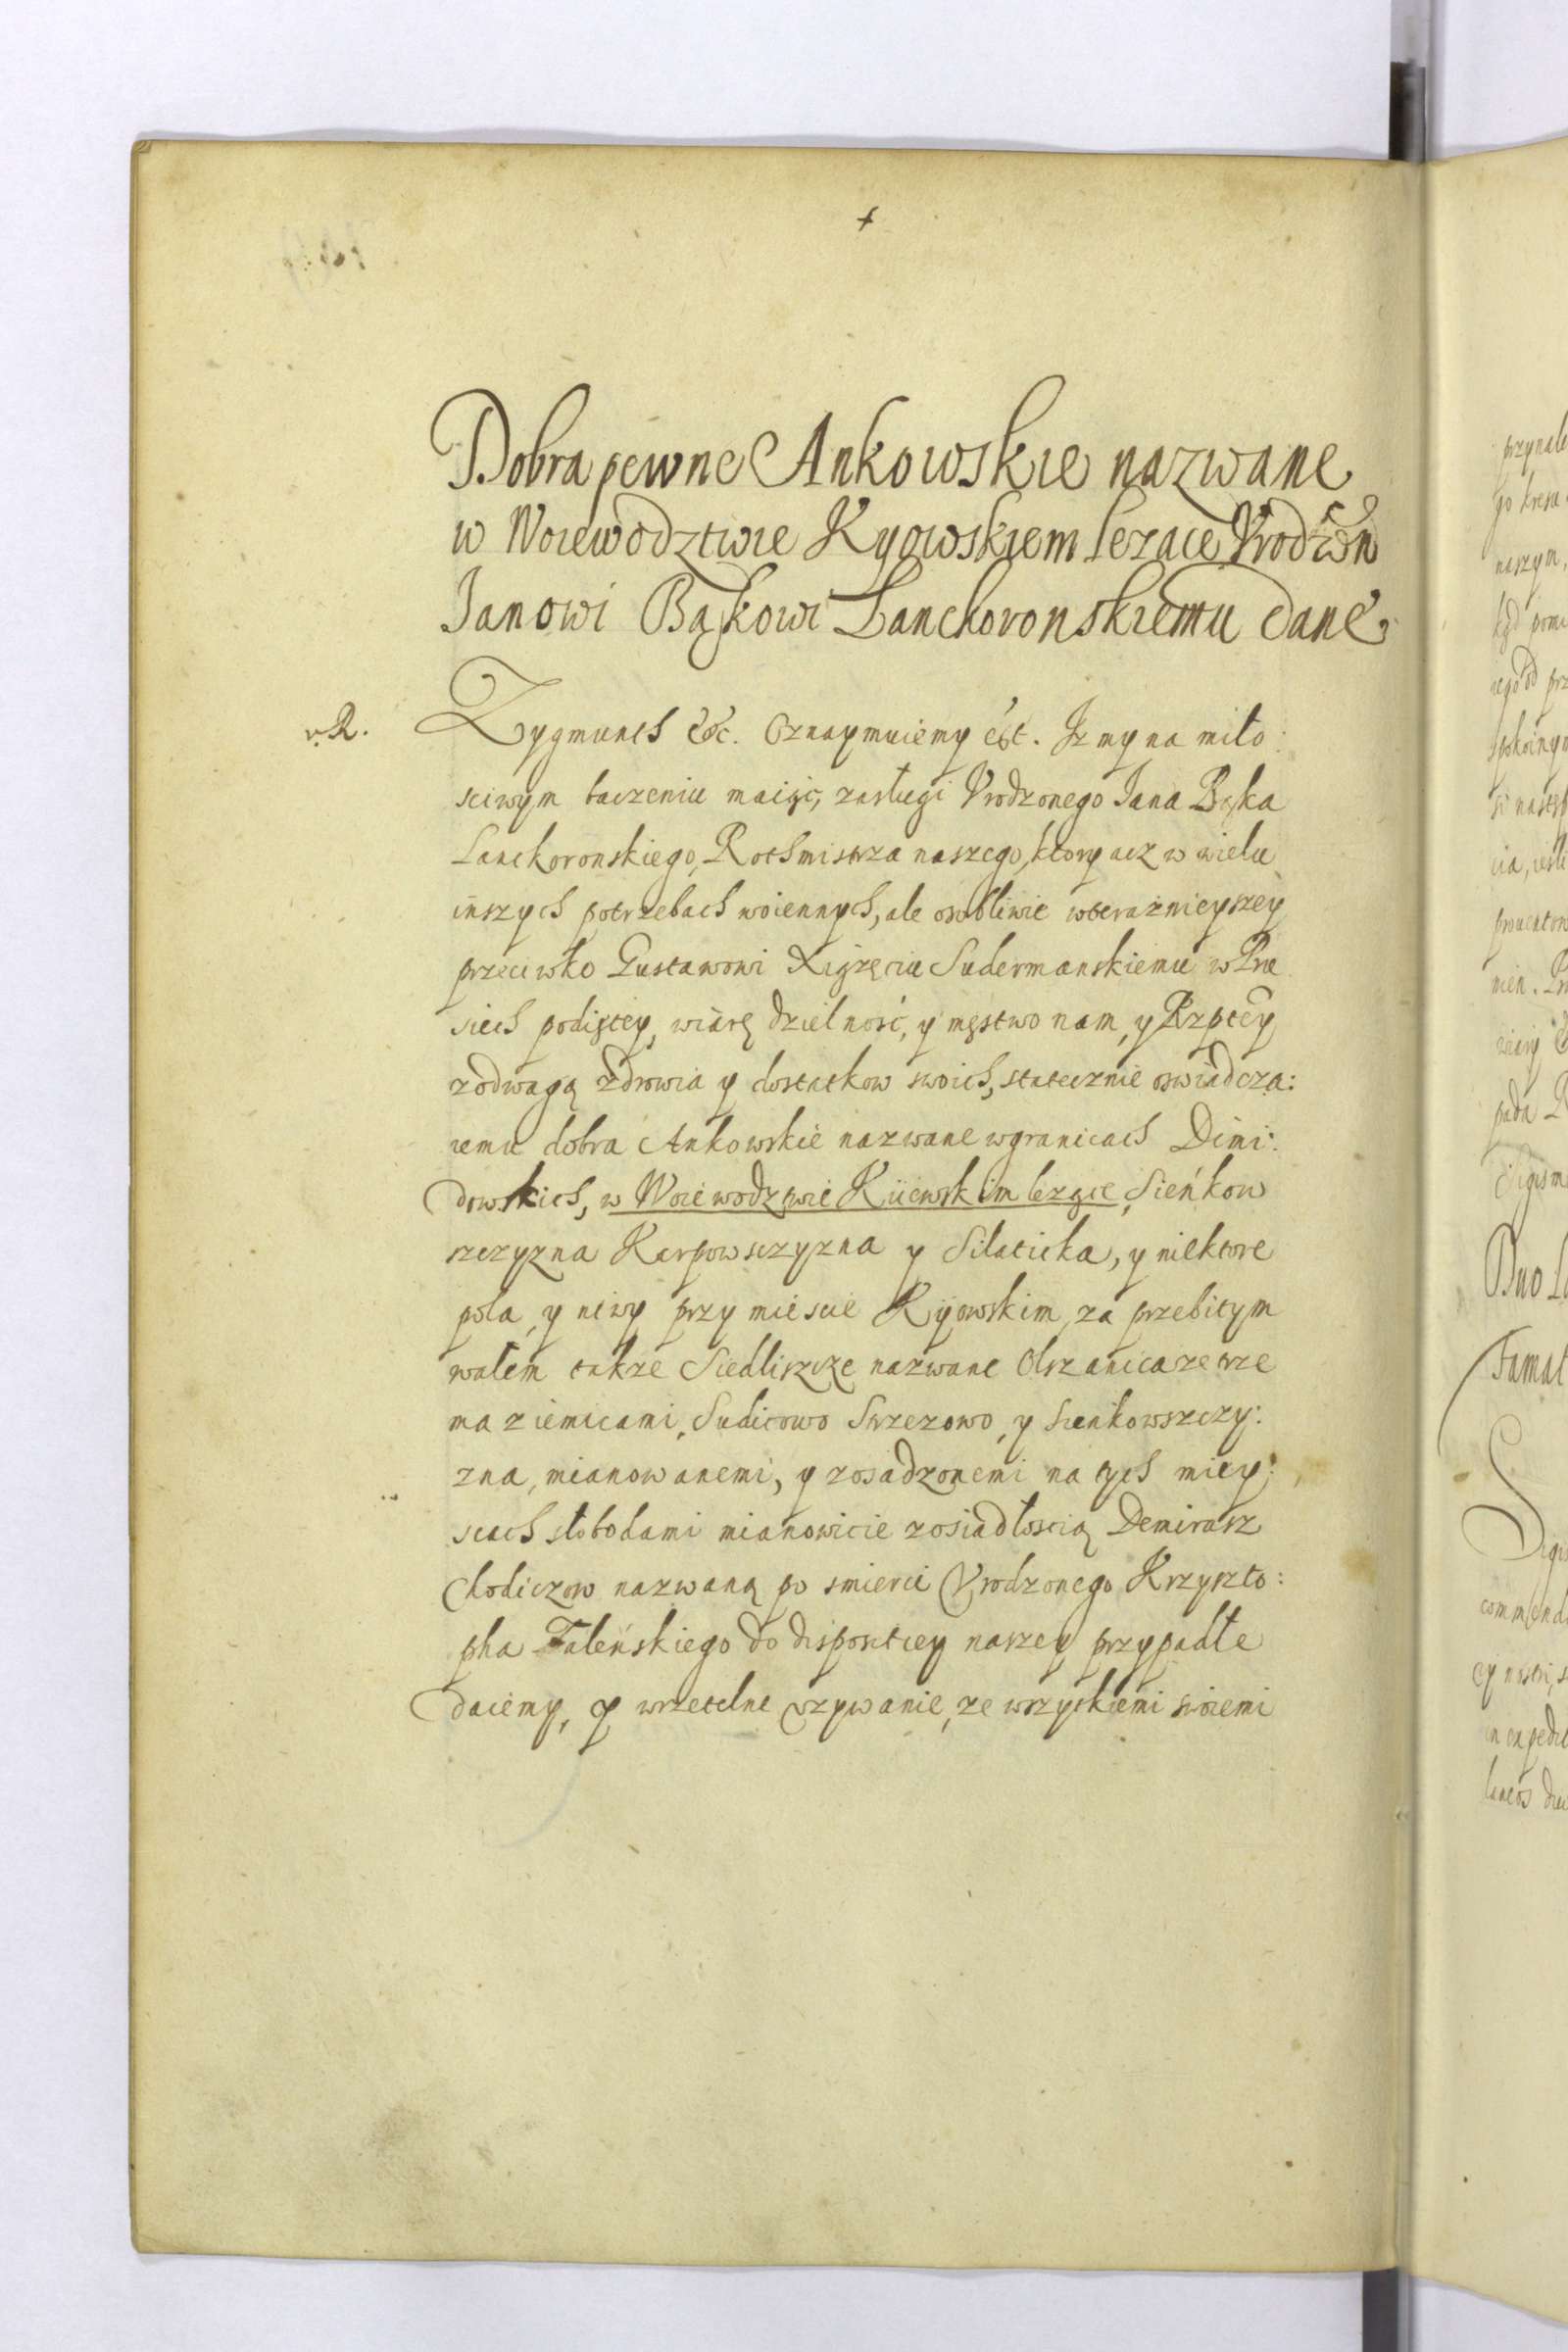 Dobra pewne Ankowskie nazwane
w Woiewodztwie Kyowskiem lezace Vrodzon
Janowi Bąkowi Lanckoronskiemu dane
R. Zygmunth &c. Oznaymuiemy etc. Iz my na miło:
sciwym baczeniu maiąc, zasługi Vrodzonego Jana Bąka
Lanckoronskiego, Rothmistrza naszego, ktory acz w wielu
inszych potrzebach woiennych, ale osobliwie wteraznieyszey
przeciwko Gustawowi Xiążęciu Sudermanskiemu w Pru
siech podiętey, wiarę dzielność, y męstwo nam, y Rzptey
zodwagą zdrowia y dostatkow swoich, statecznie oswiadcza:
iemu dobra Ankowskie nazwane wgranicach Dimi:
dowskich, w Woiewodztwie Kiiewskim lezące, Sieńkow
szczyzna Karpowszczyzna y Silaticka, y niektore
pola, y niwy przy miescie Kijowskim, za przebitym
wałem także Siedliszcze nazwane Olszanica ze trze
ma ziemicami, Sudicowo Strzezowo, y Sieńkowszczy:
zna, mianowanemi, y zosadzonemi na tych miey:
scach słobodami mianowicie zosiadłoscią Demirasz
Chodiczow nazwaną po smierci Vrodzonego Krzyszto:
pha Taleńskiego do dispositiey naszey przypadłe
daiemy, y wrzetelne vzywanie, ze wszyskiemi swoiemi
przynale
naszym,
pada R
Duo
Famat
commenda
in exped